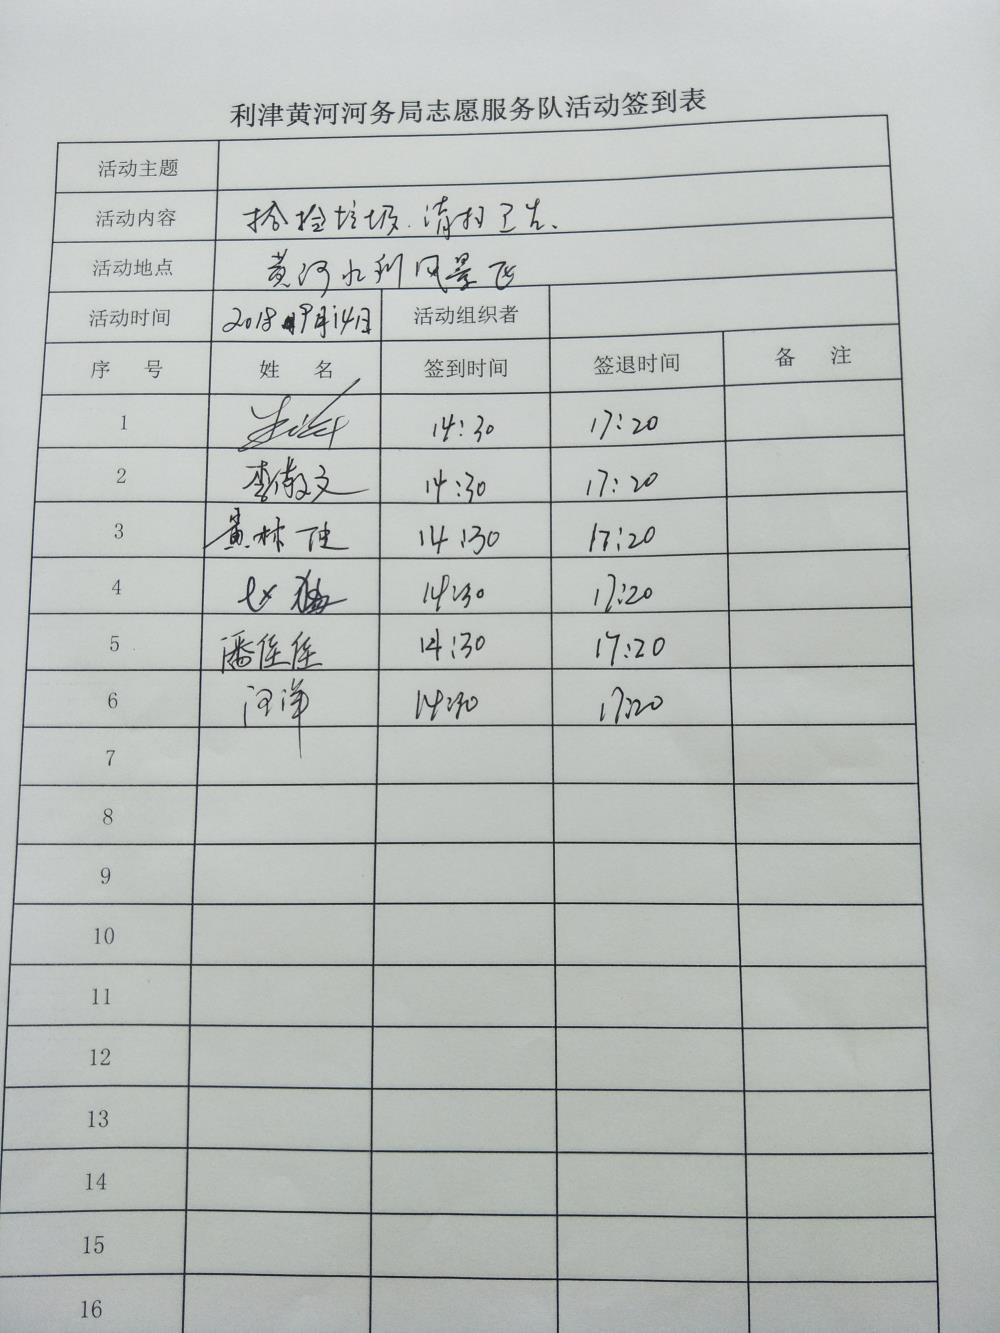 利津黄河河务局志愿服务队活动签到表
活动主题
活动内容 捡拾垃圾.清扫卫生、
活动地点 黄河水利风景区
活动时间 2018年9月14日 活动组织者
序 号 姓 名 签到时间 签退时间 备 注
1 14:30 17:20
2 李敬文 14:30 17:20
3 黄林佳 14:30 17:20
4 14:30 17:20
5 潘佳佳 14:30 17:20
6 汪洋 14:30 17:20
7
8
9
10
11
12
13
14
15
16